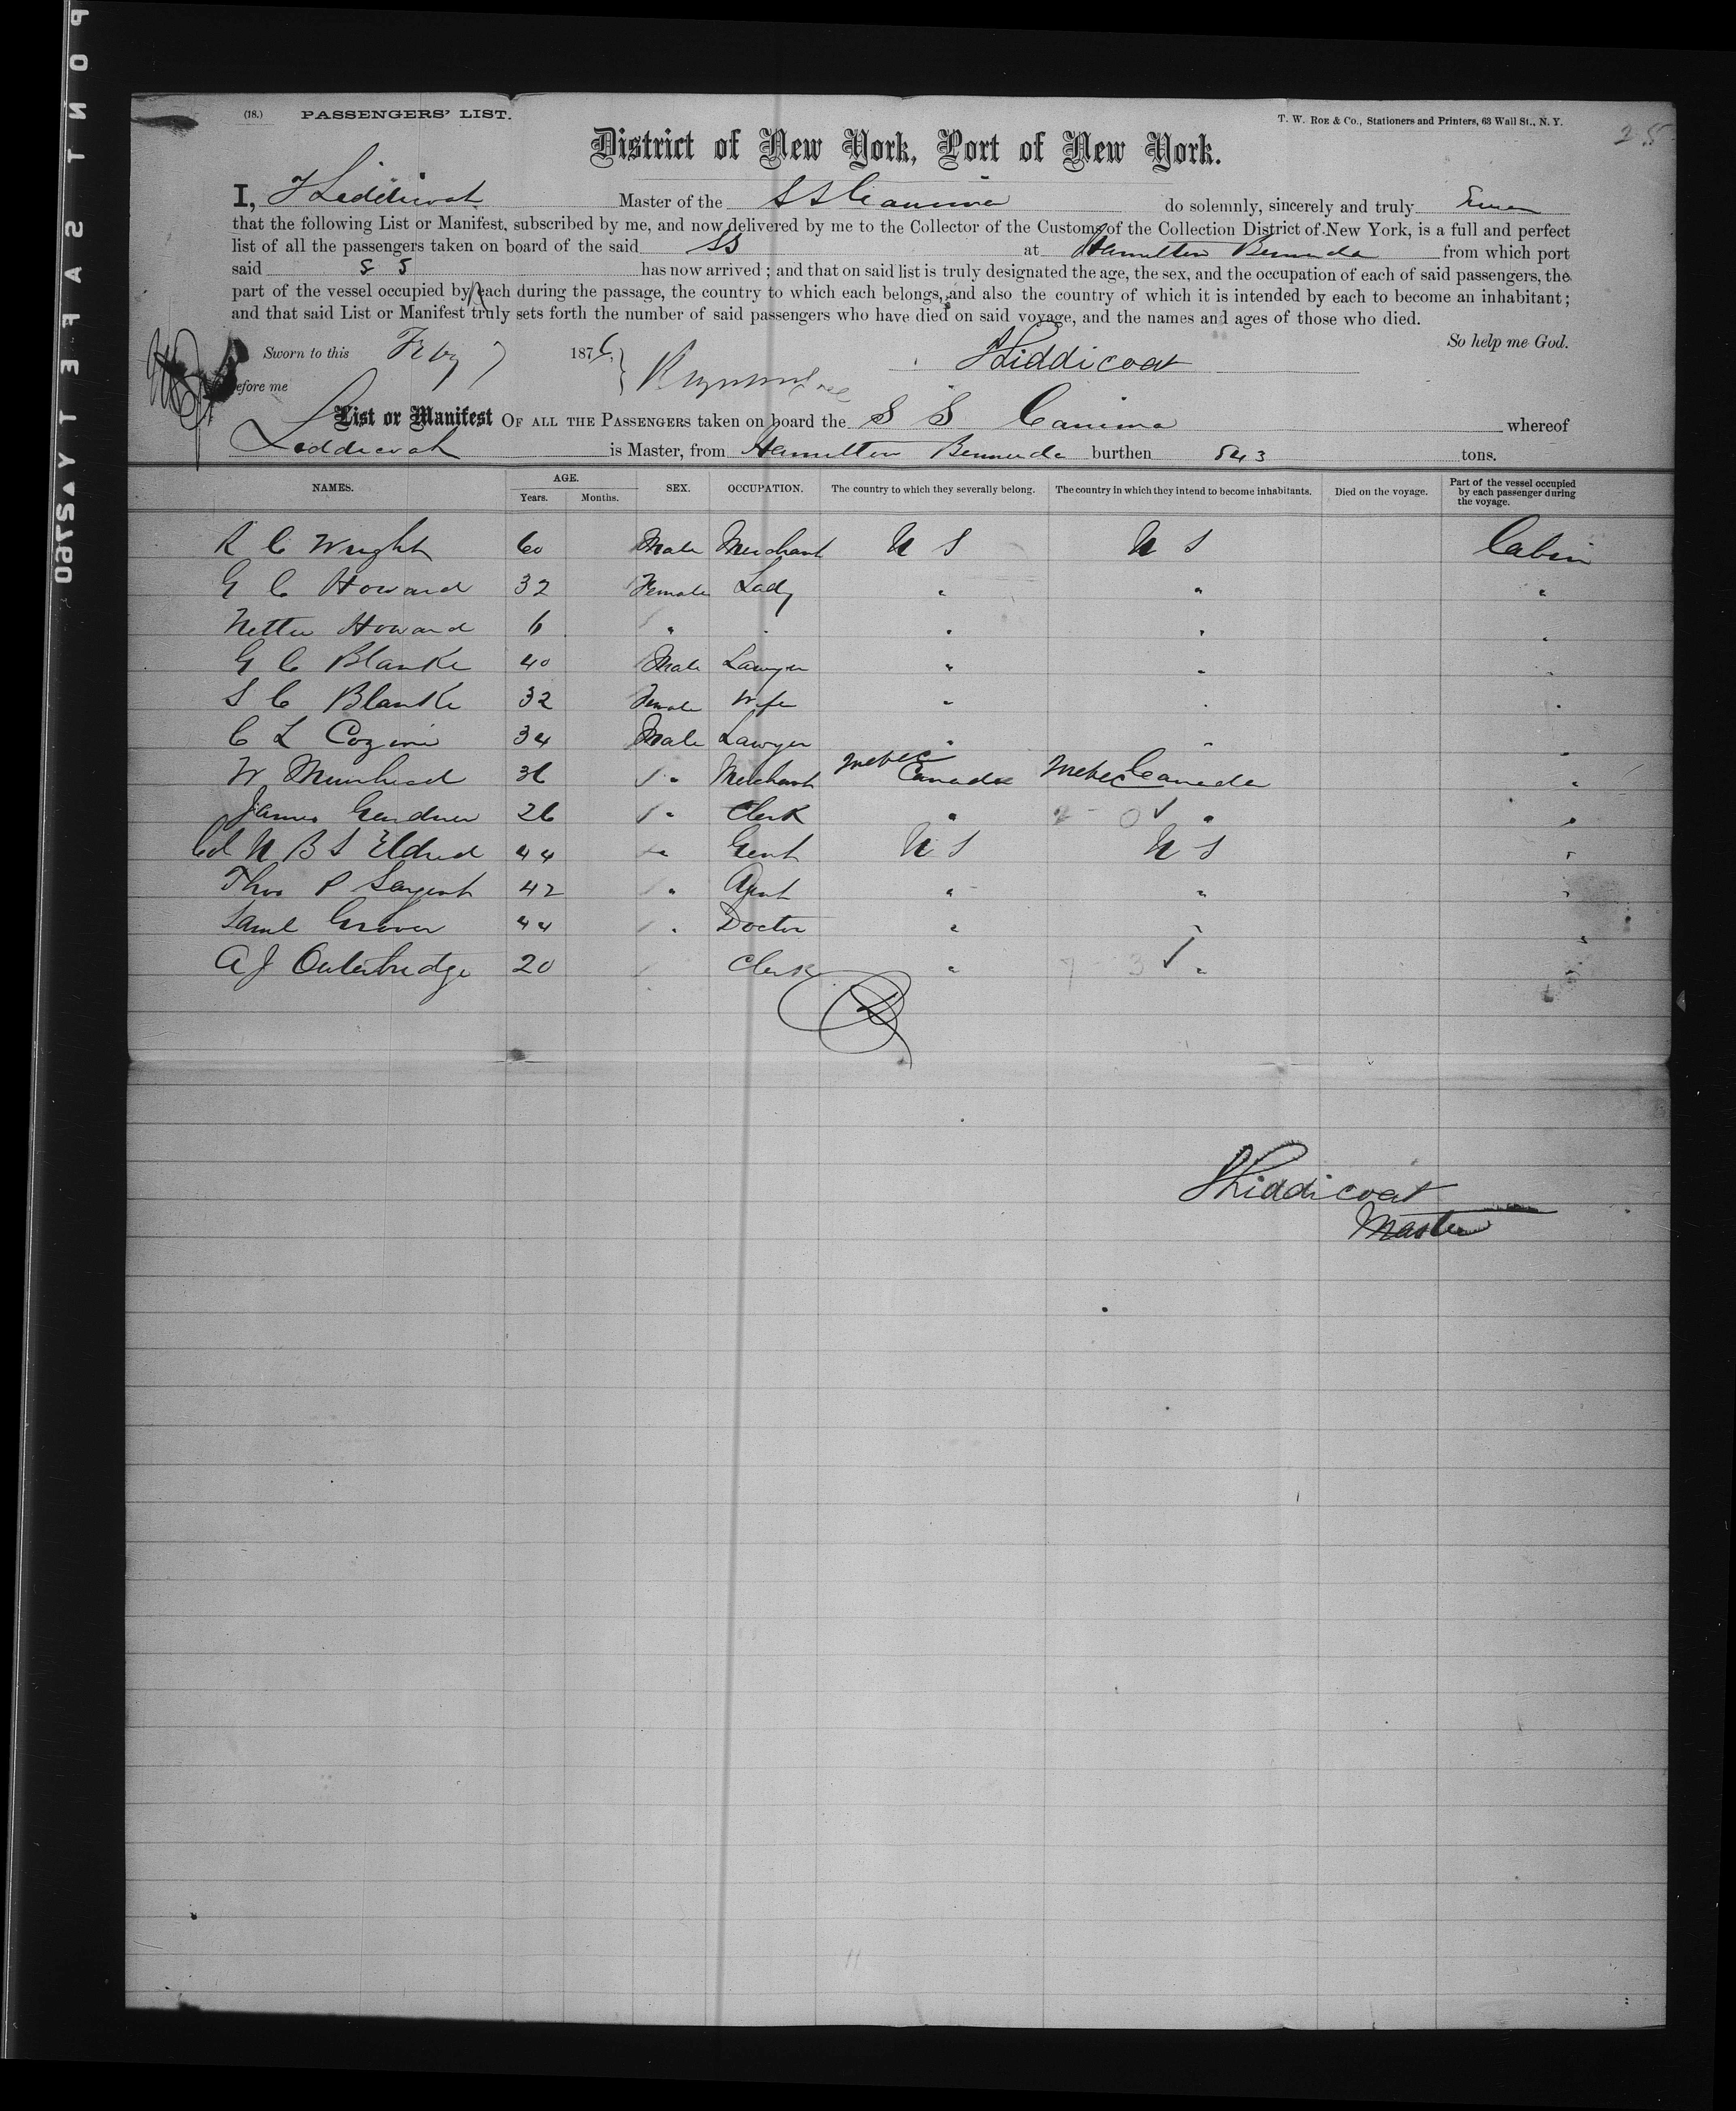 (18.) PASSENGERS' LIST.
T. W. ROE & CO., Stationers and Printers, 63 Wall St., N. Y.
25
District of New York, Port of New York.
I, Liddicoat Master of the SS Canima do solemnly, sincerely and truly Swear
that the following List or Manifest, subscribed by me, and now delivered by me to the Collector of the Customs of the Collection District of New York, is a full and perfect
list of all the passengers taken on board of the said SS at Hamilton Bermuda from which port
said SS has now arrived ; and that on said list is truly designated the age, the sex, and the occupation of each of said passengers, the
part of the vessel occupied by each during the passage, the country to which each belongs, and also the country of which it is intended by each to become an inhabitant;
and that said List or Manifest truly sets forth the number of said passengers who have died on said voyage, and the names and ages of those who died.
So help me God.
Sworn to this Feby 7 1876 Liddicoat
before me
List or Manifest OF ALL THE PASSENGERS taken on board the S S Canima whereof
Liddicoat is Master, from Hamilton Bermuda burthen 543 tons.
NAMES. AGE. Years. Months. SEX. OCCUPATION. The country to which they severally belong. The country in which they intend to become inhabitants. Died on the voyage. Part of the vessel occupied by each passenger during the voyage.
R C Wright 60 Male Merchant U S U S Cabin
G C Howard 32 Female Lady " " "
Nettie Howard 6 " " " "
G C Blanke 40 Male Lawyer " " "
S C Blanke 32 Female Wife " " "
C L 34 Male Lawyer " " "
W Muirhead 36 " Merchant Canada Canada "
James Gardner 26 " Clerk " " "
Col N B S Eldred 44 " Gent U S U S "
Thos P Sargent 42 " Agent " " "
Saml Grover 44 " Doctor " " "
A J Outerbridge 20 Clerk " " "
Liddicoat
Master